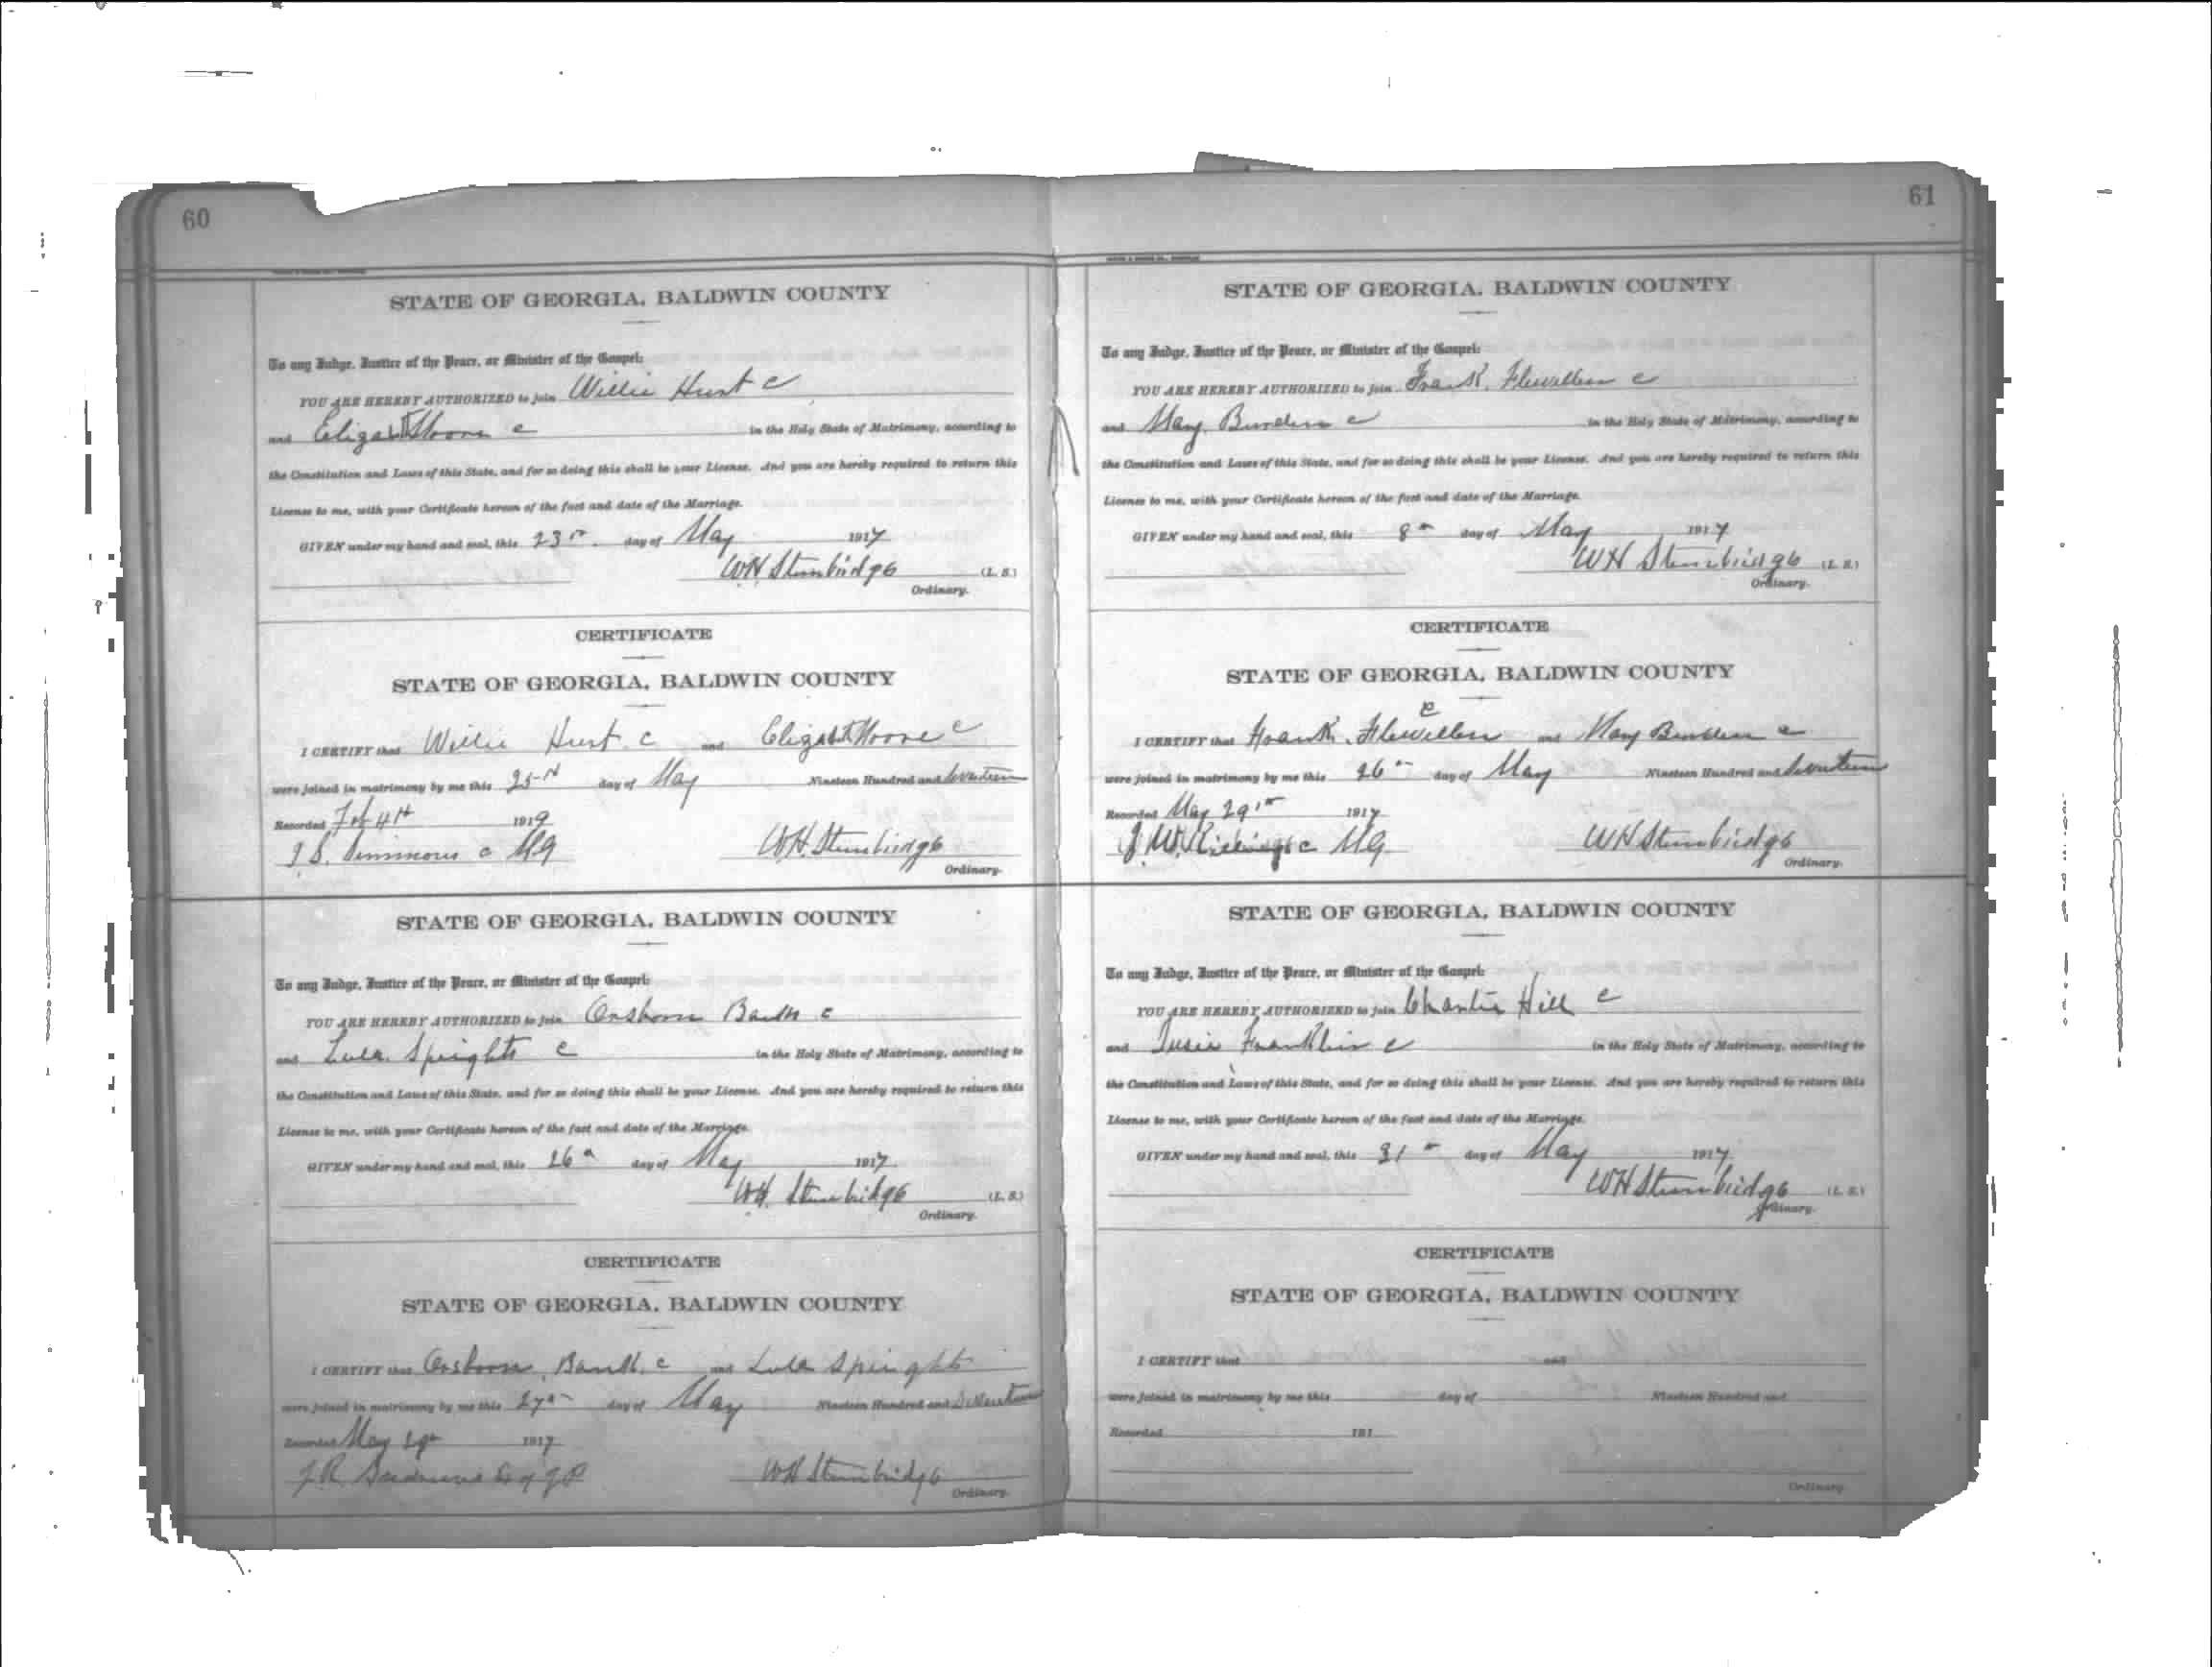 60
STATE OF GEORGIA, BALDWIN COUNTY
To any Judge, Justice of the Peace, or Minister of the Gospel:
YOU ARE HEREBY AUTHORIZED to join Willie Hurt c
and Elizabeth Moore c in the Holy State of Matrimony, according to
the Constitution and Laws of this State, and for so doing this shall be your License. And you are hereby required to return this
License to me, with your Certificate hereon of the fact and date of the Marriage.
GIVEN under my hand and seal, this 23rd day of May 1917
WH Stembridge (L. S.)
Ordinary.
CERTIFICATE
STATE OF GEORGIA, BALDWIN COUNTY
I CERTIFY that Willie Hurt c and Elizabeth Moore c
were joined in matrimony by me this 25th day of May Nineteen Hundred and Seventeen
Recorded Feb 4th 1919
J. S. Simmons c MG WH Stembridge
Ordinary.
STATE OF GEORGIA, BALDWIN COUNTY
To any Judge, Justice of the Peace, or Minister of the Gospel:
YOU ARE HEREBY AUTHORIZED to join Banks c
and Lula Speights c in the Holy State of Matrimony, according to
the Constitution and Laws of this State, and for so doing this shall be your License. And you are hereby required to return this
License to me, with your Certificate hereon of the fact and date of the Marriage.
GIVEN under my hand and seal, this 26th day of May 1917
WH Stembridge (L. S.)
Ordinary.
CERTIFICATE
STATE OF GEORGIA, BALDWIN COUNTY
I CERTIFY that Bank c and Lula Speights
were joined in matrimony by me this 27th day of May Nineteen Hundred and Seventeen
Recorded May 1917
J R WH Stembridge
Ordinary.
61
STATE OF GEORGIA, BALDWIN COUNTY
To any Judge, Justice of the Peace, or Minister of the Gospel:
YOU ARE HEREBY AUTHORIZED to join Frank Flewellen c
and May Burden c in the Holy State of Matrimony, according to
the Constitution and Laws of this State, and for so doing this shall be your License. And you are hereby required to return this
License to me, with your Certificate hereon of the fact and date of the Marriage.
GIVEN under my hand and seal, this 8th day of May 1917
WH Stembridge (L. S.)
Ordinary.
CERTIFICATE
STATE OF GEORGIA, BALDWIN COUNTY
I CERTIFY that Frank Flewellen c and May Burden c
were joined in matrimony by me this 26th day of May Nineteen Hundred and Seventeen
Recorded May 29th 1917
J. W. c MG WH Stembridge
Ordinary.
STATE OF GEORGIA, BALDWIN COUNTY
To any Judge, Justice of the Peace, or Minister of the Gospel:
YOU ARE HEREBY AUTHORIZED to join Charlie Hill c
and Susie Franklin c in the Holy State of Matrimony, according to
the Constitution and Laws of this State, and for so doing this shall be your License. And you are hereby required to return this
License to me, with your Certificate hereon of the fact and date of the Marriage.
GIVEN under my hand and seal, this 31st day of May 1917
WH Stembridge (L. S.)
Ordinary.
CERTIFICATE
STATE OF GEORGIA, BALDWIN COUNTY
I CERTIFY that and
were joined in matrimony by me this day of Nineteen Hundred and
Recorded 191
Ordinary